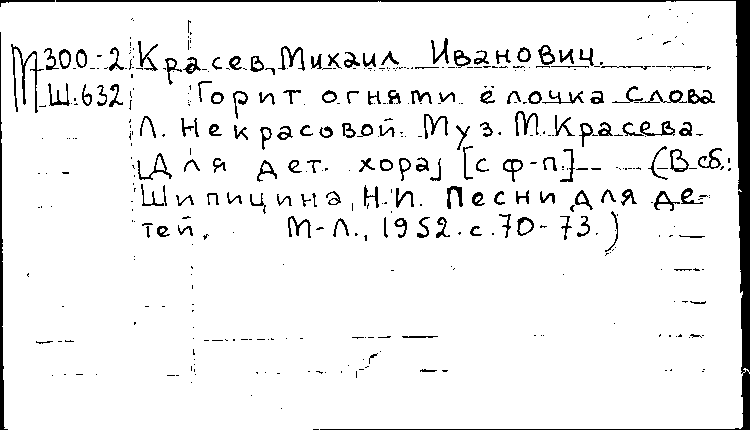 М 300-2 Красев, Михаил Иванович.
Ш.632 Горит огнями ёлочка слова
Л. Некрасовой. Муз. М. Красева
[Для дет. хора] [с ф-п.] (В сб.:
Шипицина, Н.И. Песни для де-
тей. М-Л., 1952. с. 70-73.)